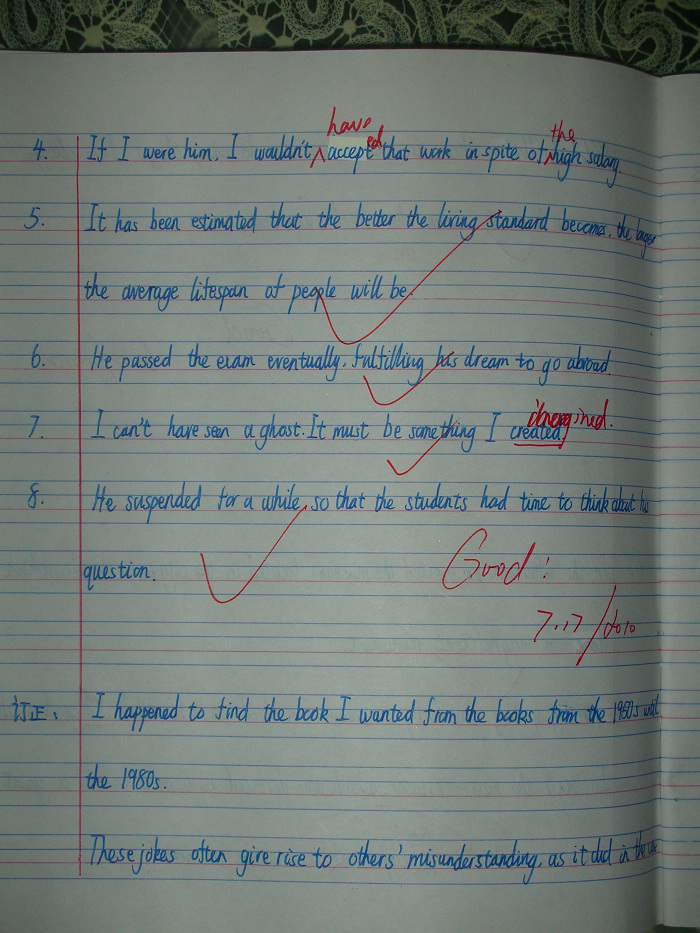 have the
4. If I were him, I wouldn't ∧ accepted that work in spite of ∧ high salary.
5. It has been estimated that the better the living standard becomes, the longer
the average lifespan of people will be.
6. He passed the exam eventually, fulfilling his dream to go abroad.
imagined.
7. I can't have seen a ghost. It must be something I created.
8. He suspended for a while, so that the students had time to think about his
question.
Good!
7.17/2010
订正:
I happened to find the book I wanted from the books from the 1960s until
the 1980s.
These jokes often give rise to others' misunderstanding, as it did in the